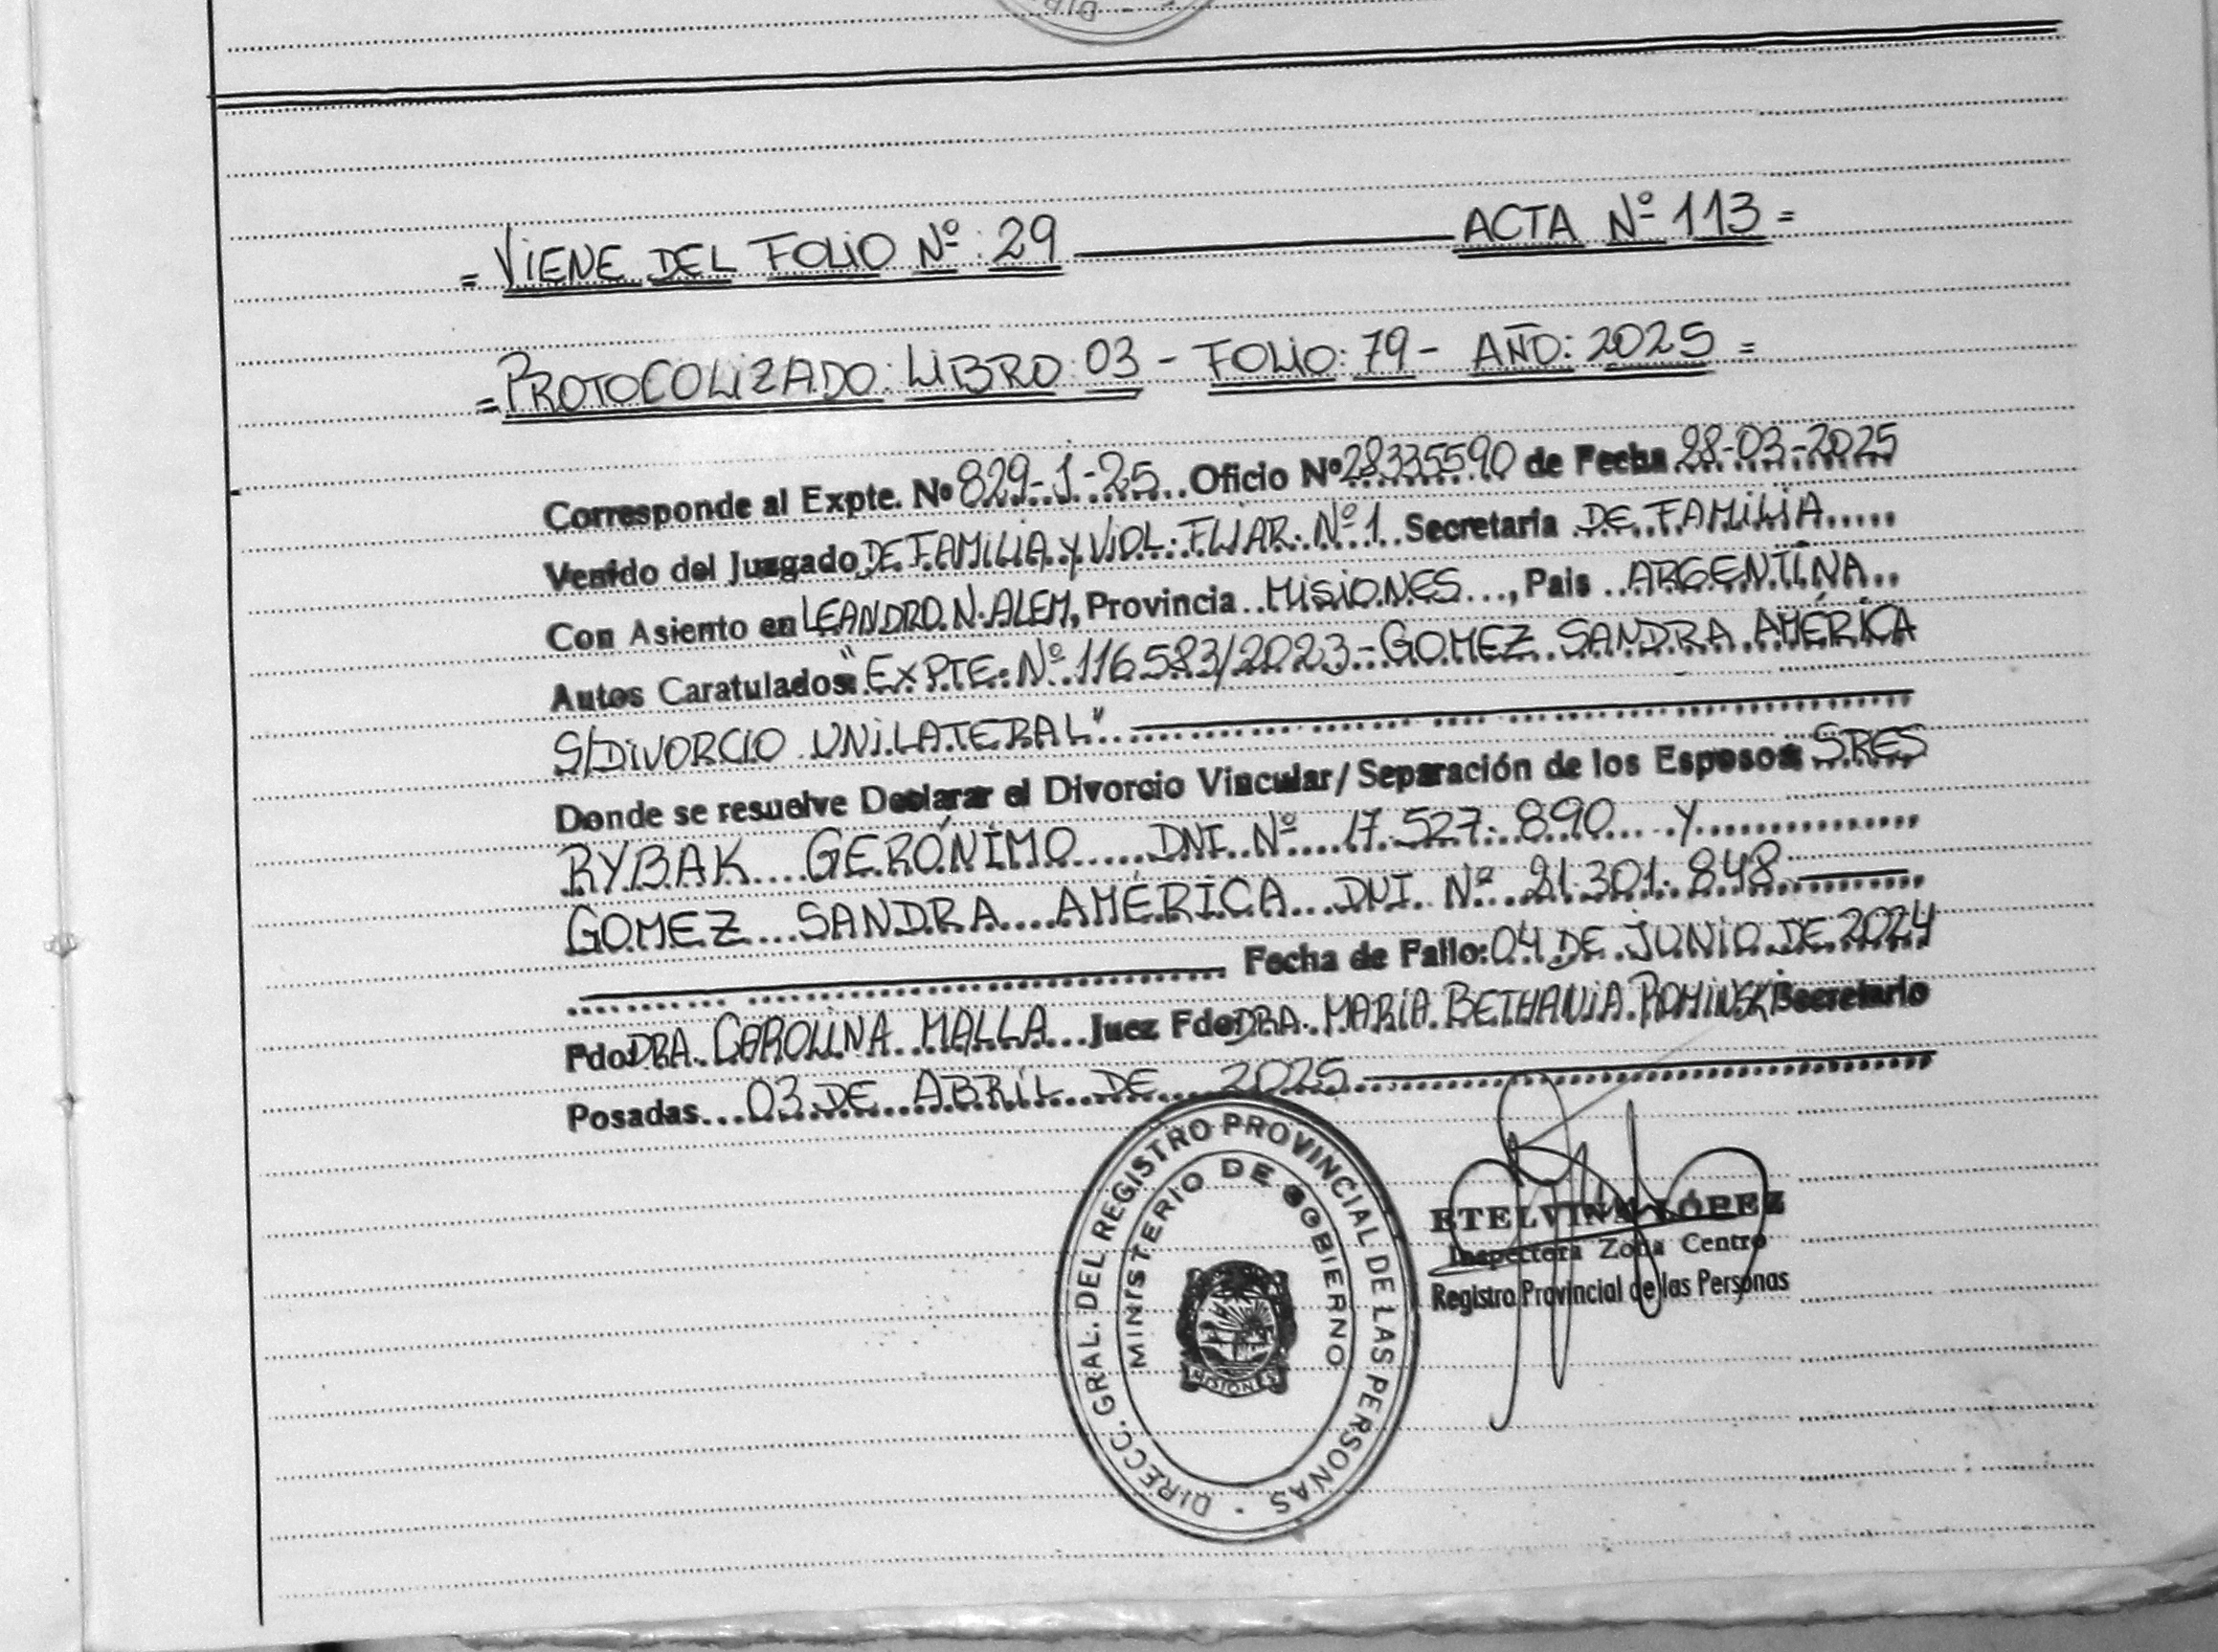 = VIENE DEL FOLIO Nº: 29 ACTA Nº 113 =
= PROTOCOLIZADO: LIBRO: 03 - FOLIO: 79 - AÑO: 2025 =
Corresponde al Expte. Nº 829-1-25 Oficio Nº 28335590 de Fecha 28-03-2025
Venido del Juzgado DE FAMILIA Y VIOL. FLIAR. Nº 1 Secretaria DE FAMILIA
Con Asiento en LEANDRO N. ALEM, Provincia MISIONES, Pais ARGENTINA
Autos Caratulados: "EXPTE. Nº 116583/2023 - GOMEZ SANDRA AMÉRICA
S/DIVORCIO UNILATERAL"
Donde se resuelve Declarar el Divorcio Vincular/Separación de los Esposos: SRES
RYBAK GERÓNIMO DNI Nº 17.527.890 Y
GOMEZ SANDRA AMÉRICA DNI Nº 21.301.848
Fecha de Fallo: 04 DE JUNIO DE 2024
Fdo: DRA. CAROLINA MALLA Juez Fdo: DRA. MARIA BETHANIA ROMINSKI Secretario
Posadas 03 DE ABRIL DE 2025
DIRECC. GRAL. DEL REGISTRO PROVINCIAL DE LAS PERSONAS
MINISTERIO DE GOBIERNO
MISIONES
ETELVINA LÓPEZ
Inspectora Zona Centro
Registro Provincial de las Personas